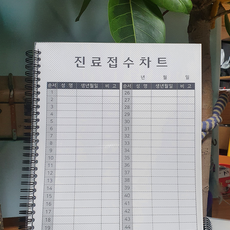 진료접수차트
년 월 일
순서 성 명 생년월일 비 고 순서 성 명 생년월일 비 고
1 26
2 27
3 28
4 29
5 30
6 31
7 32
8 33
9 34
10 35
11 36
12 37
13 38
14 39
15 40
16 41
17 42
18 43
19 44